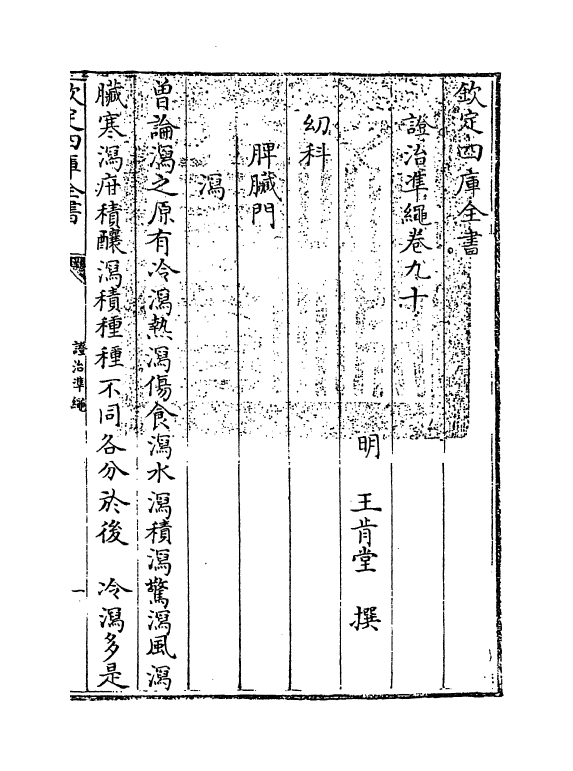 欽定四庫全書
證治準繩卷九十
明 王肯堂 撰
幼科
脾臟門
瀉
曽論瀉之原有冷瀉熱瀉傷食瀉水瀉積瀉驚瀉風瀉
臟寒瀉疳積釀瀉積種種不同各分於後 冷瀉多是
欽定四庫全書
證治準繩
一